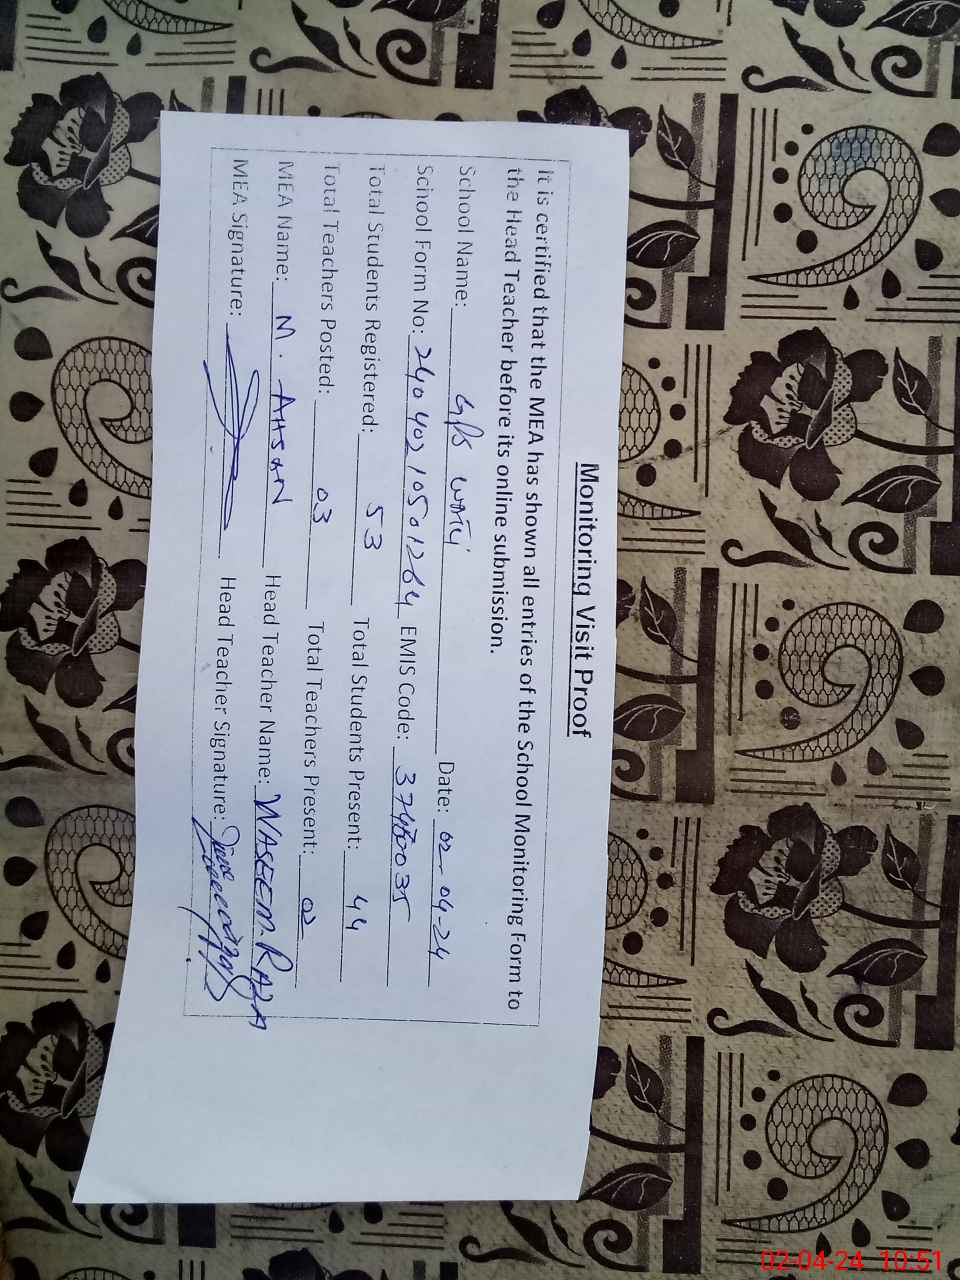 Monitoring Visit Proof
It is certified that the MEA has shown all entries of the School Monitoring Form to
the Head Teacher before its online submission.
School Name: GPS Date: 02-04-24
School Form No: 24040210501264 EMIS Code: 37480035
Total Students Registered: 53 Total Students Present: 44
Total Teachers Posted: 03 Total Teachers Present: 02
MEA Name: M. AHSAN Head Teacher Name: WASEEM. RAZA
MEA Signature: Head Teacher Signature:
02-04-24 10:51